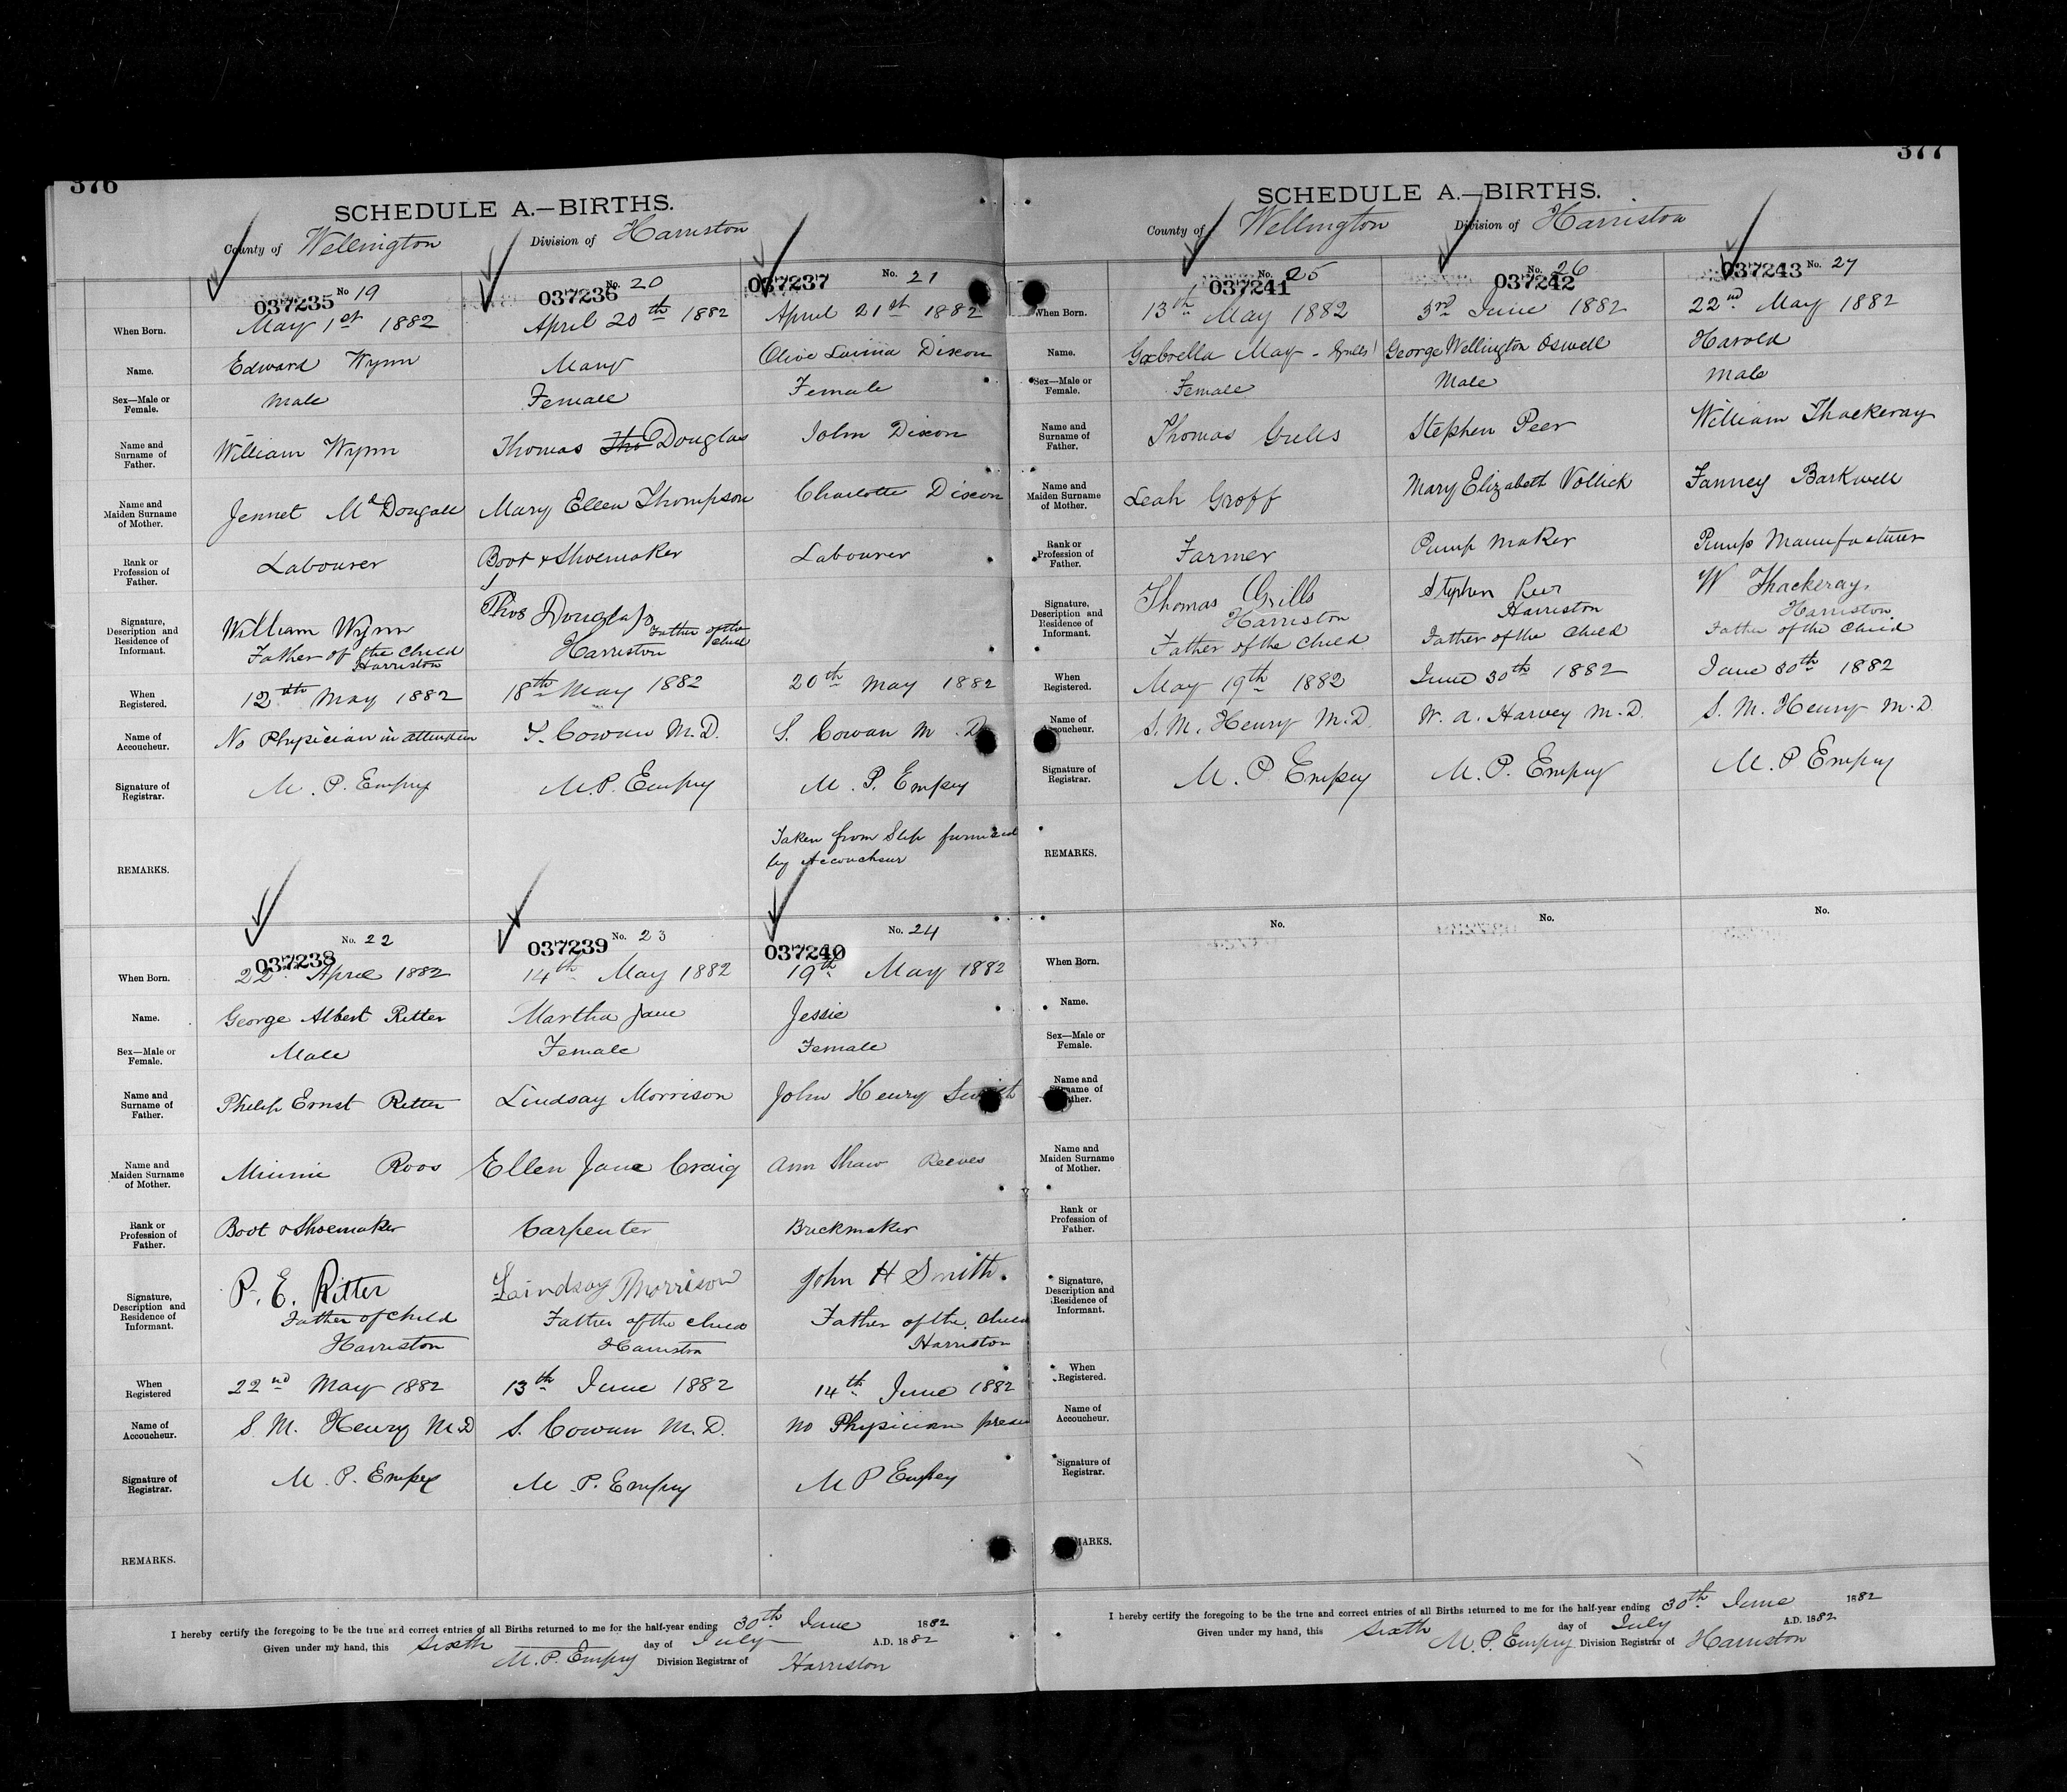 376
SCHEDULE A.—BIRTHS.
County of Wellington Division of Harriston
037235 No 19 037236 No. 20 037237 No. 21
When Born. May 1st 1882 April 20th 1882 April 21st 1882
Name. Edward Wynn Mary Olive Dixon
Sex—Male or Female. Male Female Female
Name and Surname of Father. William Wynn Thomas Tho Douglas John Dixon
Name and Maiden Surname of Mother. Jennet McDougall Mary Ellen Thompson Charlotte Dixon
Rank or Profession of Father. Labourer Boot & Shoemaker Labourer
Signature, Description and Residence of Informant. William Wynn Thos Douglass
Father of the Child Harriston Father of the Child
Harriston
When Registered. 12th May 1882 18th May 1882 20th May 1882
Name of Accoucheur. No Physician in attention S. Cowan M.D. S. Cowan M.D.
Signature of Registrar. M. P. Empey M. P. Empey M. P. Empey
REMARKS. Taken from Slip
by Accoucheur
037238 No. 22 037239 No. 23 037240 No. 24
When Born. 22nd April 1882 14th May 1882 19th May 1882
Name. George Albert Ritter Martha Jane Jessie
Sex—Male or Female. Male Female Female
Name and Surname of Father. Philip Ernst Ritter Lindsay Morrison John Henry Smith
Name and Maiden Surname of Mother. Minnie Roos Ellen Jane Craig Ann Shaw Reeves
Rank or Profession of Father. Boot & Shoemaker Carpenter Brickmaker
Signature, Description and Residence of Informant. P. E. Ritter Laindsay Morrison John H Smith.
Father of Child Father of the Child Father of the Child
Harriston Harriston Harriston
When Registered 22nd May 1882 13th June 1882 14th June 1882
Name of Accoucheur. S. M. Henry M.D S. Cowan M.D. No Physician
Signature of Registrar. M. P. Empey M. P. Empey M P Empey
REMARKS.
I hereby certify the foregoing to be the true and correct entries of all Births returned to me for the half-year ending 30th June 1882
Given under my hand, this Sixth day of July A.D. 1882
M. P. Empey Division Registrar of Harriston
377
SCHEDULE A.—BIRTHS.
County of Wellington Division of Harriston
037241 No. 25 037242 No. 26 037243 No. 27
When Born. 13th May 1882 3rd June 1882 22nd May 1882
Name. Gabrella May - Grills George Wellington Oswell Harold
Sex—Male or Female. Female Male Male
Name and Surname of Father. Thomas Grills Stephen Peer William Thackeray
Name and Maiden Surname of Mother. Leah Groff Mary Elizabeth Vollick Fanney Barkwell
Rank or Profession of Father. Farmer Pump Maker Pump Manufacturer
Signature, Description and Residence of Informant. Thomas Grills Stephen Peer W Thackeray.
Harriston Harriston Harriston
Father of the Child Father of the Child Father of the Child
When Registered. May 19th 1882 June 30th 1882 June 30th 1882
Name of Accoucheur. S. M. Henry M.D. W. A. Harvey M.D. S. M. Henry M.D
Signature of Registrar. M. P. Empey M. P. Empey M. P Empey
REMARKS.
No. No. No.
When Born.
Name.
Sex—Male or Female.
Name and Surname of Father.
Name and Maiden Surname of Mother.
Rank or Profession of Father.
Signature, Description and Residence of Informant.
When Registered.
Name of Accoucheur.
Signature of Registrar.
REMARKS.
I hereby certify the foregoing to be the true and correct entries of all Births returned to me for the half-year ending 30th June 1882
Given under my hand, this Sixth day of July A.D. 1882
M. P. Empey Division Registrar of Harriston